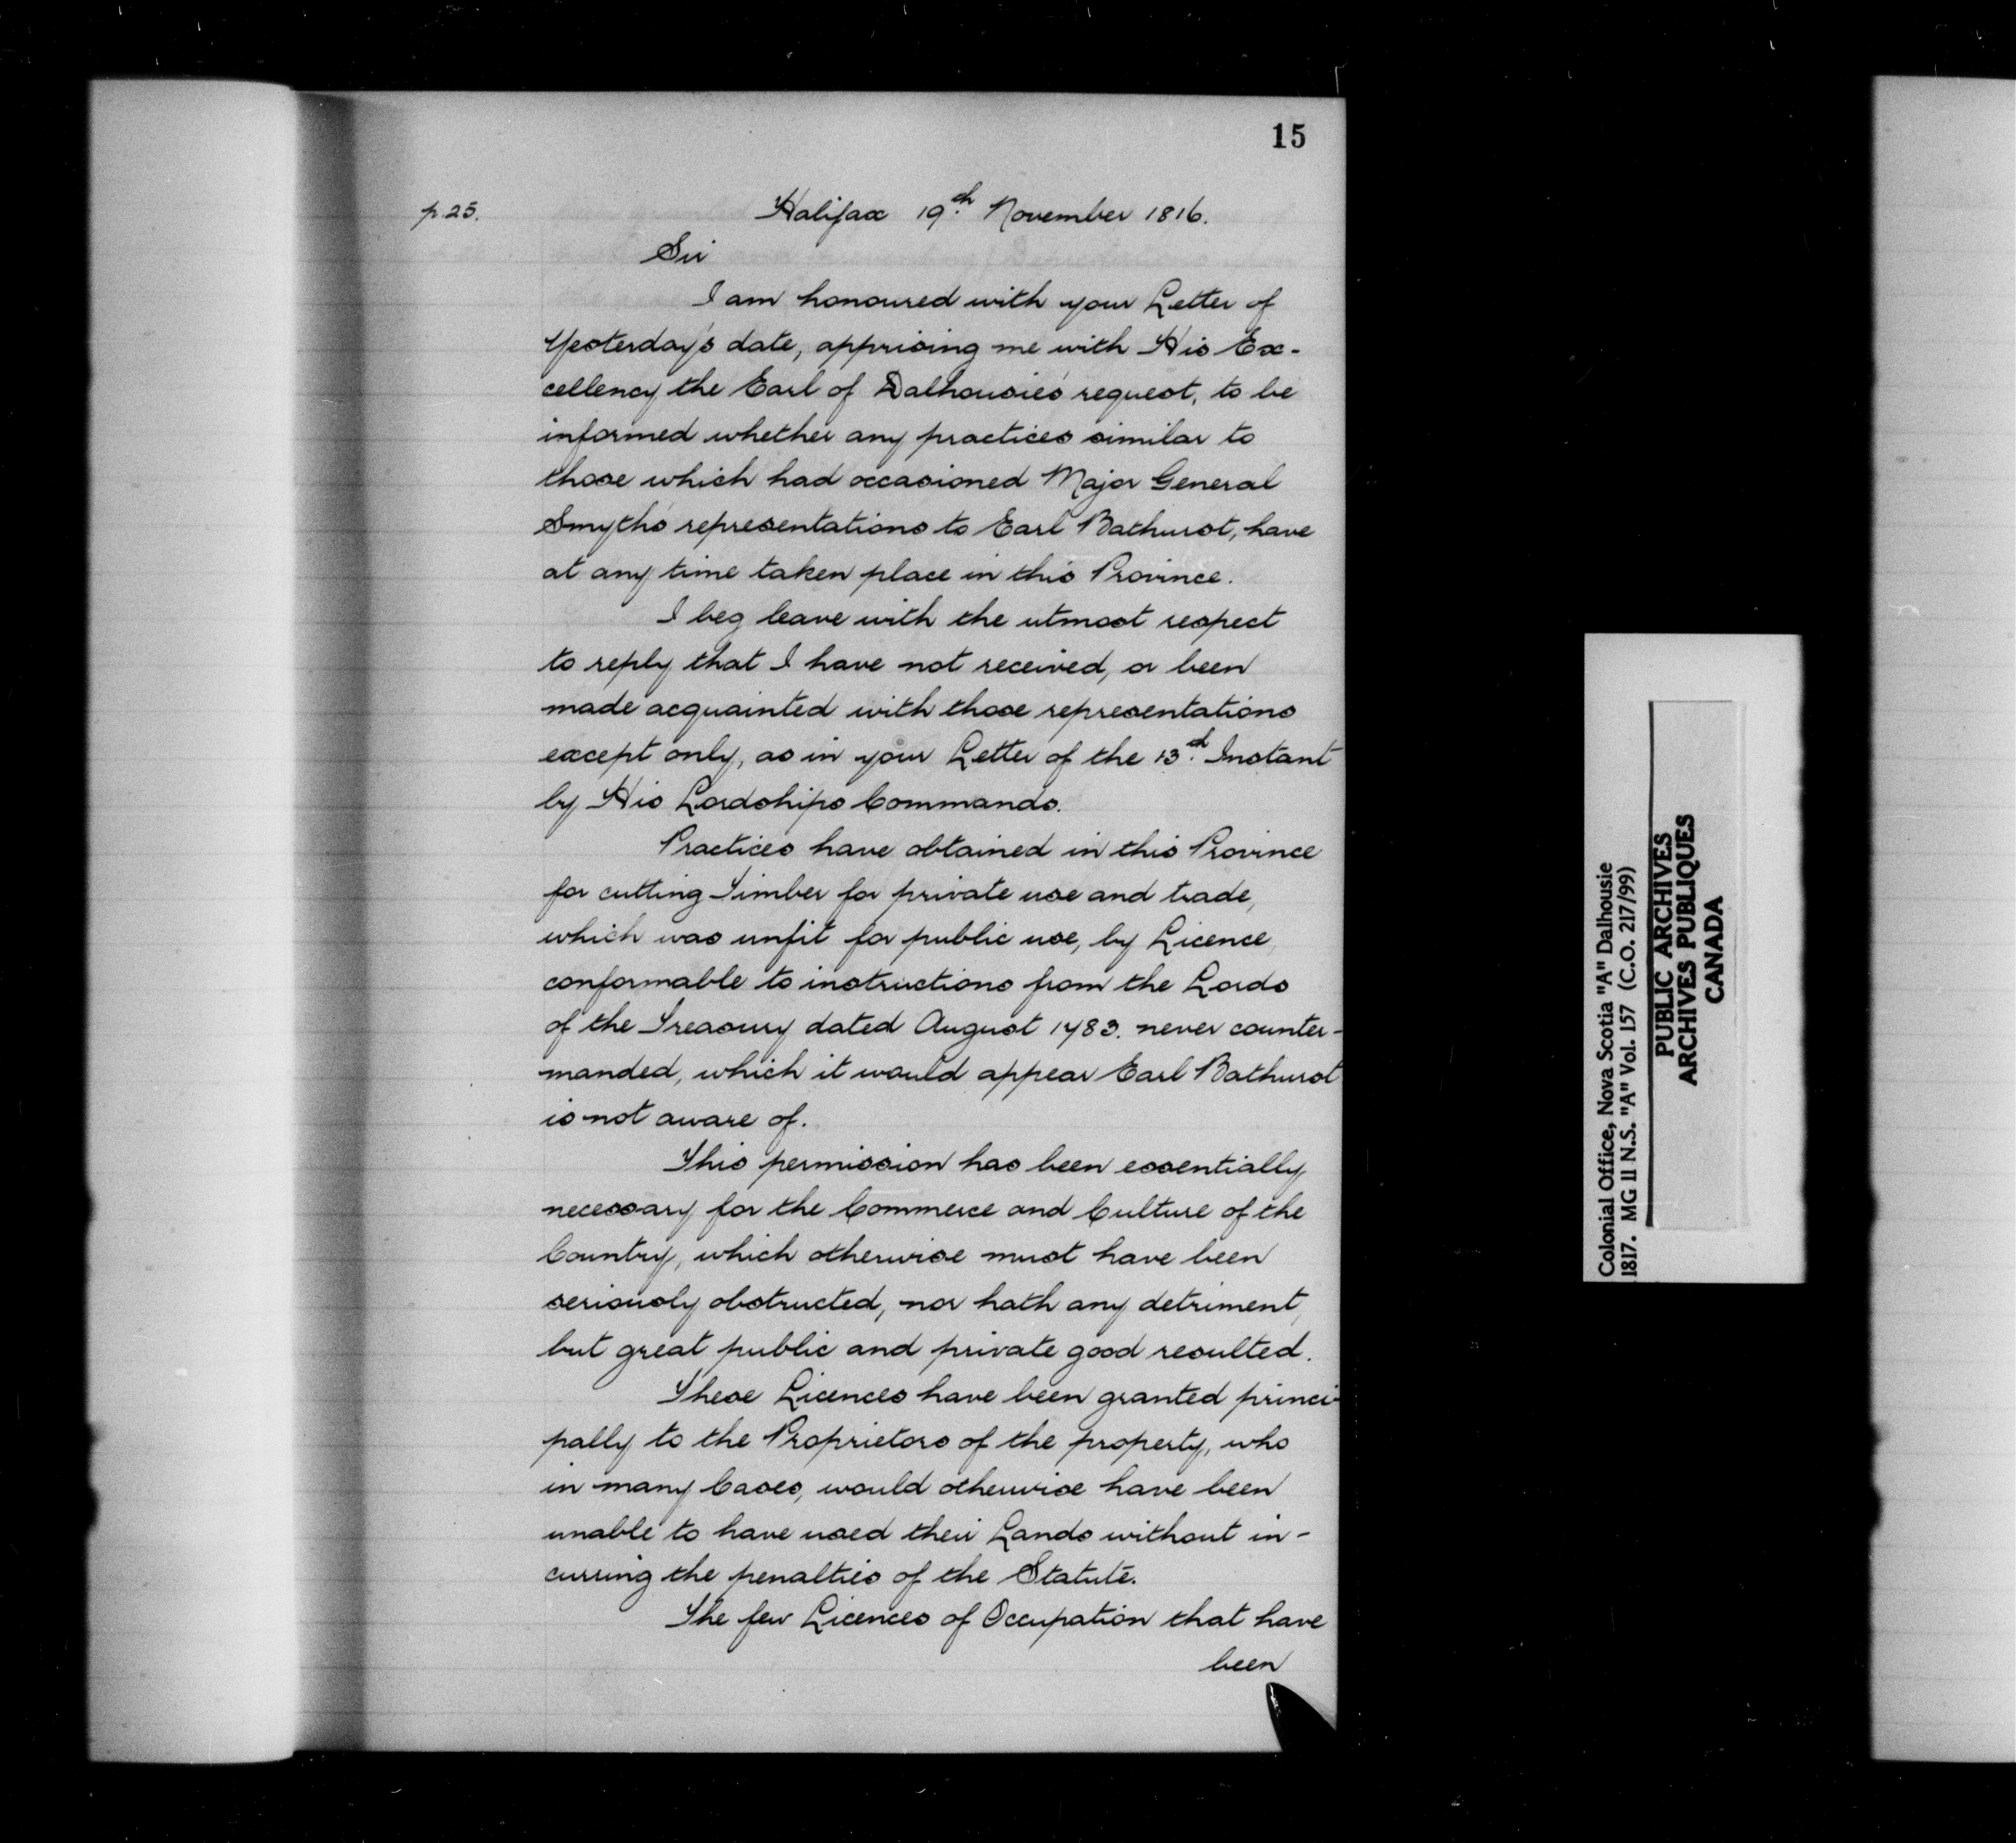 15
p. 25.
Halifax 19th November 1816.
Sir
I am honoured with your Letter of
Yesterday's date, apprising me with His Ex-
cellency the Earl of Dalhousie's request, to be
informed whether any practices similar to
those which had occasioned Major General
Smyth's representations to Earl Bathurst, have
at any time taken place in this Province.
I beg leave with the utmost respect
to reply that I have not received, or been
made acquainted with those representations
except only, as in your Letter of the 13th Instant
by His Lordships Commands.
Practices have obtained in this Province
for cutting Timber for private use and trade,
which was unfit for public use, by Licence
conformable to instructions from the Lords
of the Treasury dated August 1783. never counter-
manded, which it would appear Earl Bathurst
is not aware of.
This permission has been essentially
necessary for the Commerce and Culture of the
Country, which otherwise must have been
seriously obstructed, nor hath any detriment,
but great public and private good resulted.
These Licences have been granted princi-
pally to the Proprietors of the property, who
in many Cases, would otherwise have been
unable to have used their Lands without in-
curring the penalties of the Statute.
The few Licences of Occupation that have
been
Colonial Office, Nova Scotia "A" Dalhousie
1817. MG 11 N.S. "A" Vol. 157 (C.O. 217/99)
PUBLIC ARCHIVES
ARCHIVES PUBLIQUES
CANADA